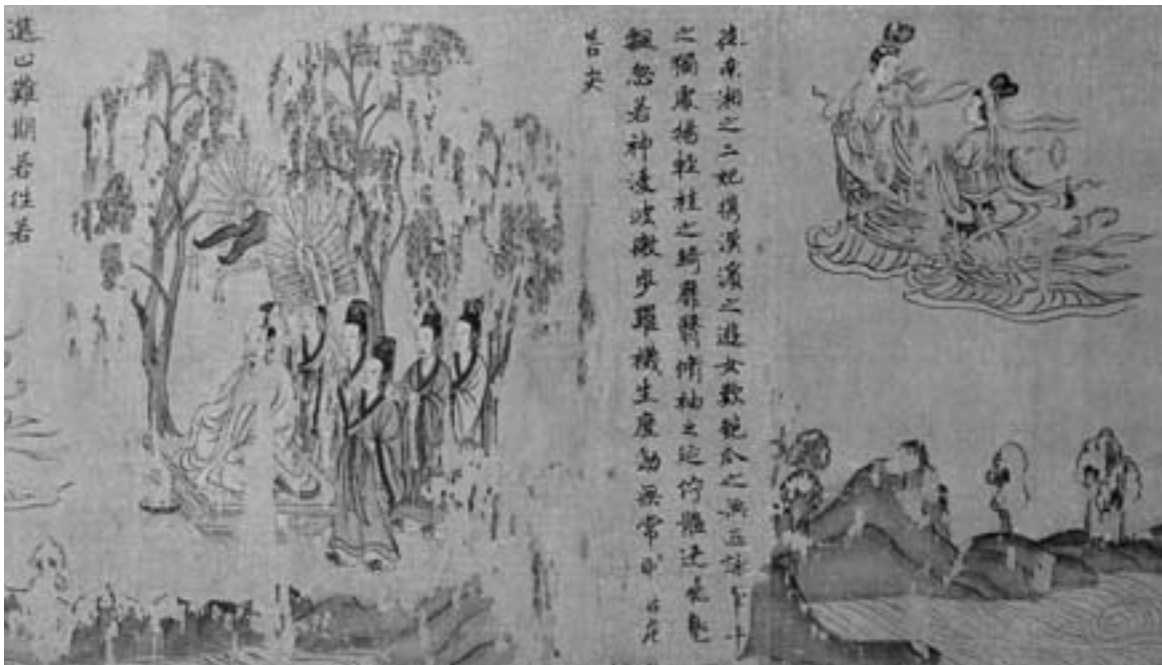 從南湘之二妃携漢濱之遊女歎匏瓜之無匹詠牽牛
之獨處揚輕袿之綺靡翳脩袖之延佇體迅飛鳧
飄忽若神凌波微步羅襪生塵動無常則若危
若安
進止難期若往若